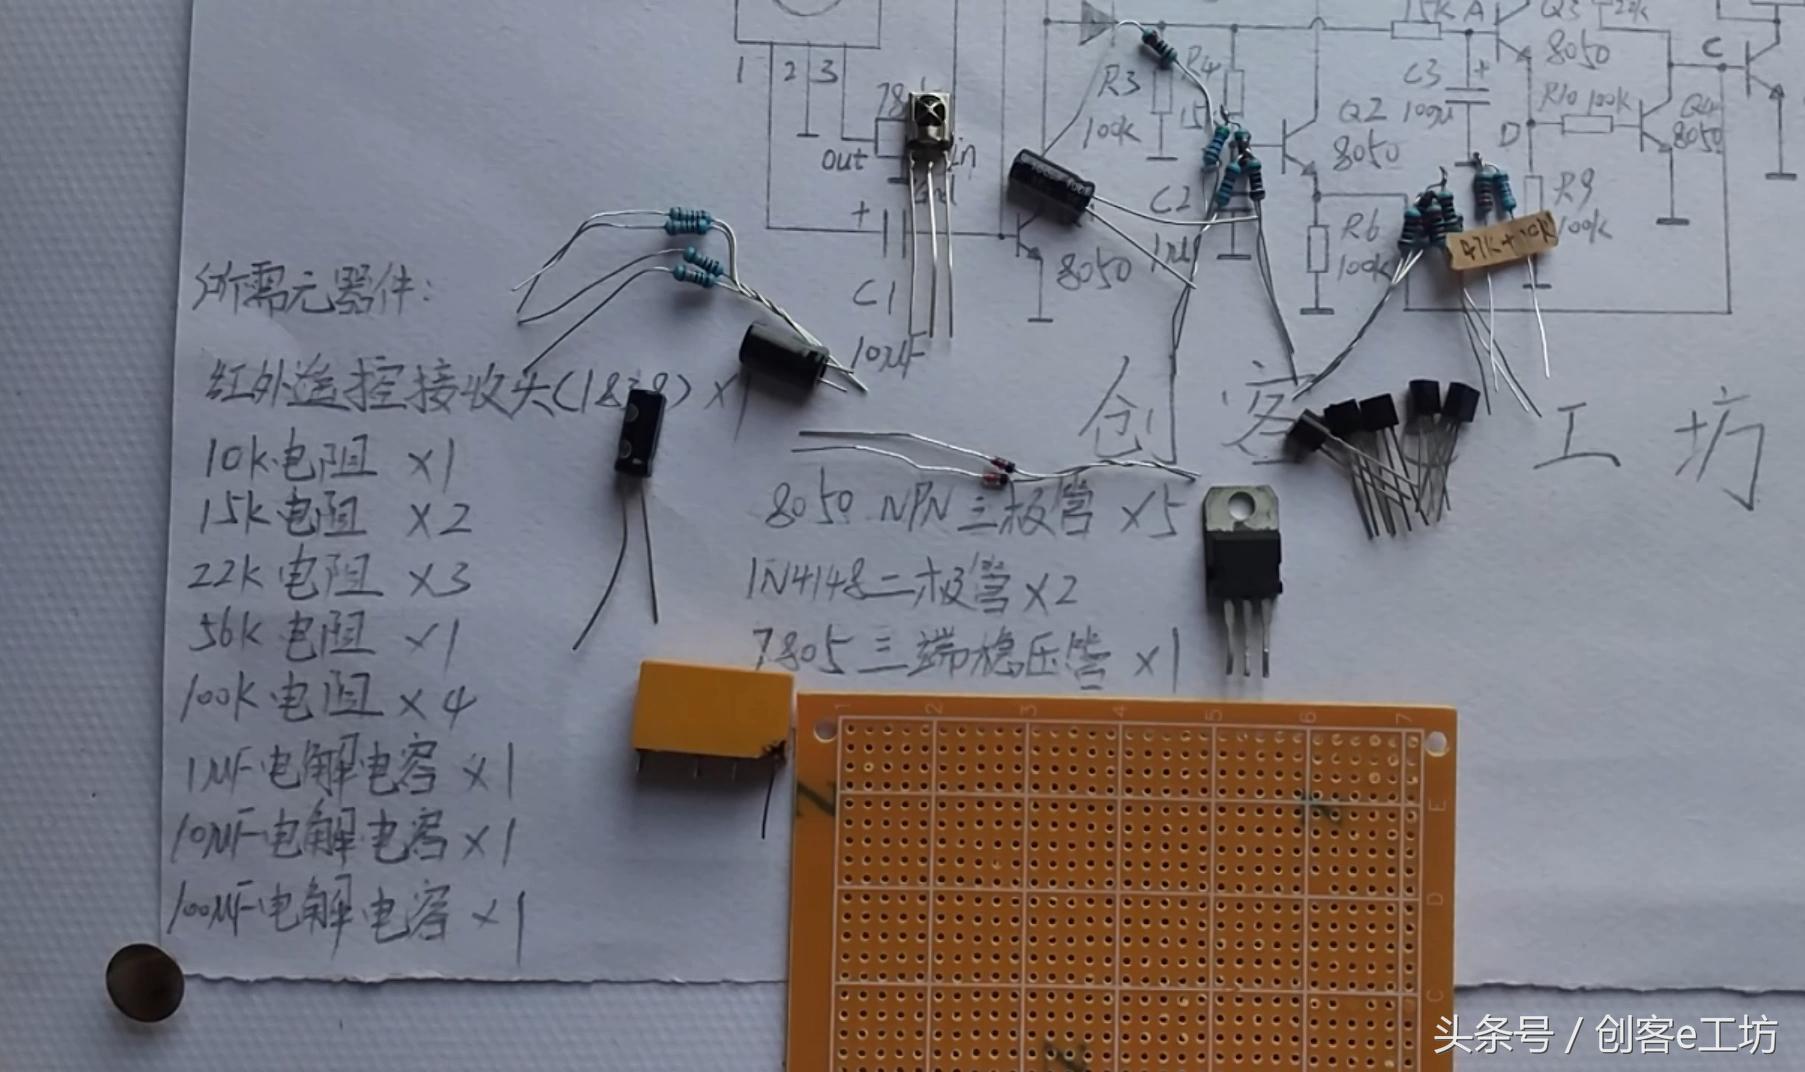 1 2 3
78
out
in
+
C1
10μF
8050
R3
100k
R4
15
C2
1μ
Q2
8050
R6
100k
15k A
C3
100μ
+
Q3
8050
22k
D
R10 100k
Q4
8050
C
R9
100k
47K+10K
所需元器件:
红外遥控接收头(1838)×1
10k电阻 ×1
15k电阻 ×2
22k电阻 ×3
56k电阻 ×1
100k电阻 ×4
1μF电解电容 ×1
10μF电解电容 ×1
100μF电解电容 ×1
创客 工坊
8050 NPN三极管 ×5
1N4148二极管 ×2
7805三端稳压管 ×1
1 2 3 4 5 6 7
E
D
C
头条号 / 创客e工坊